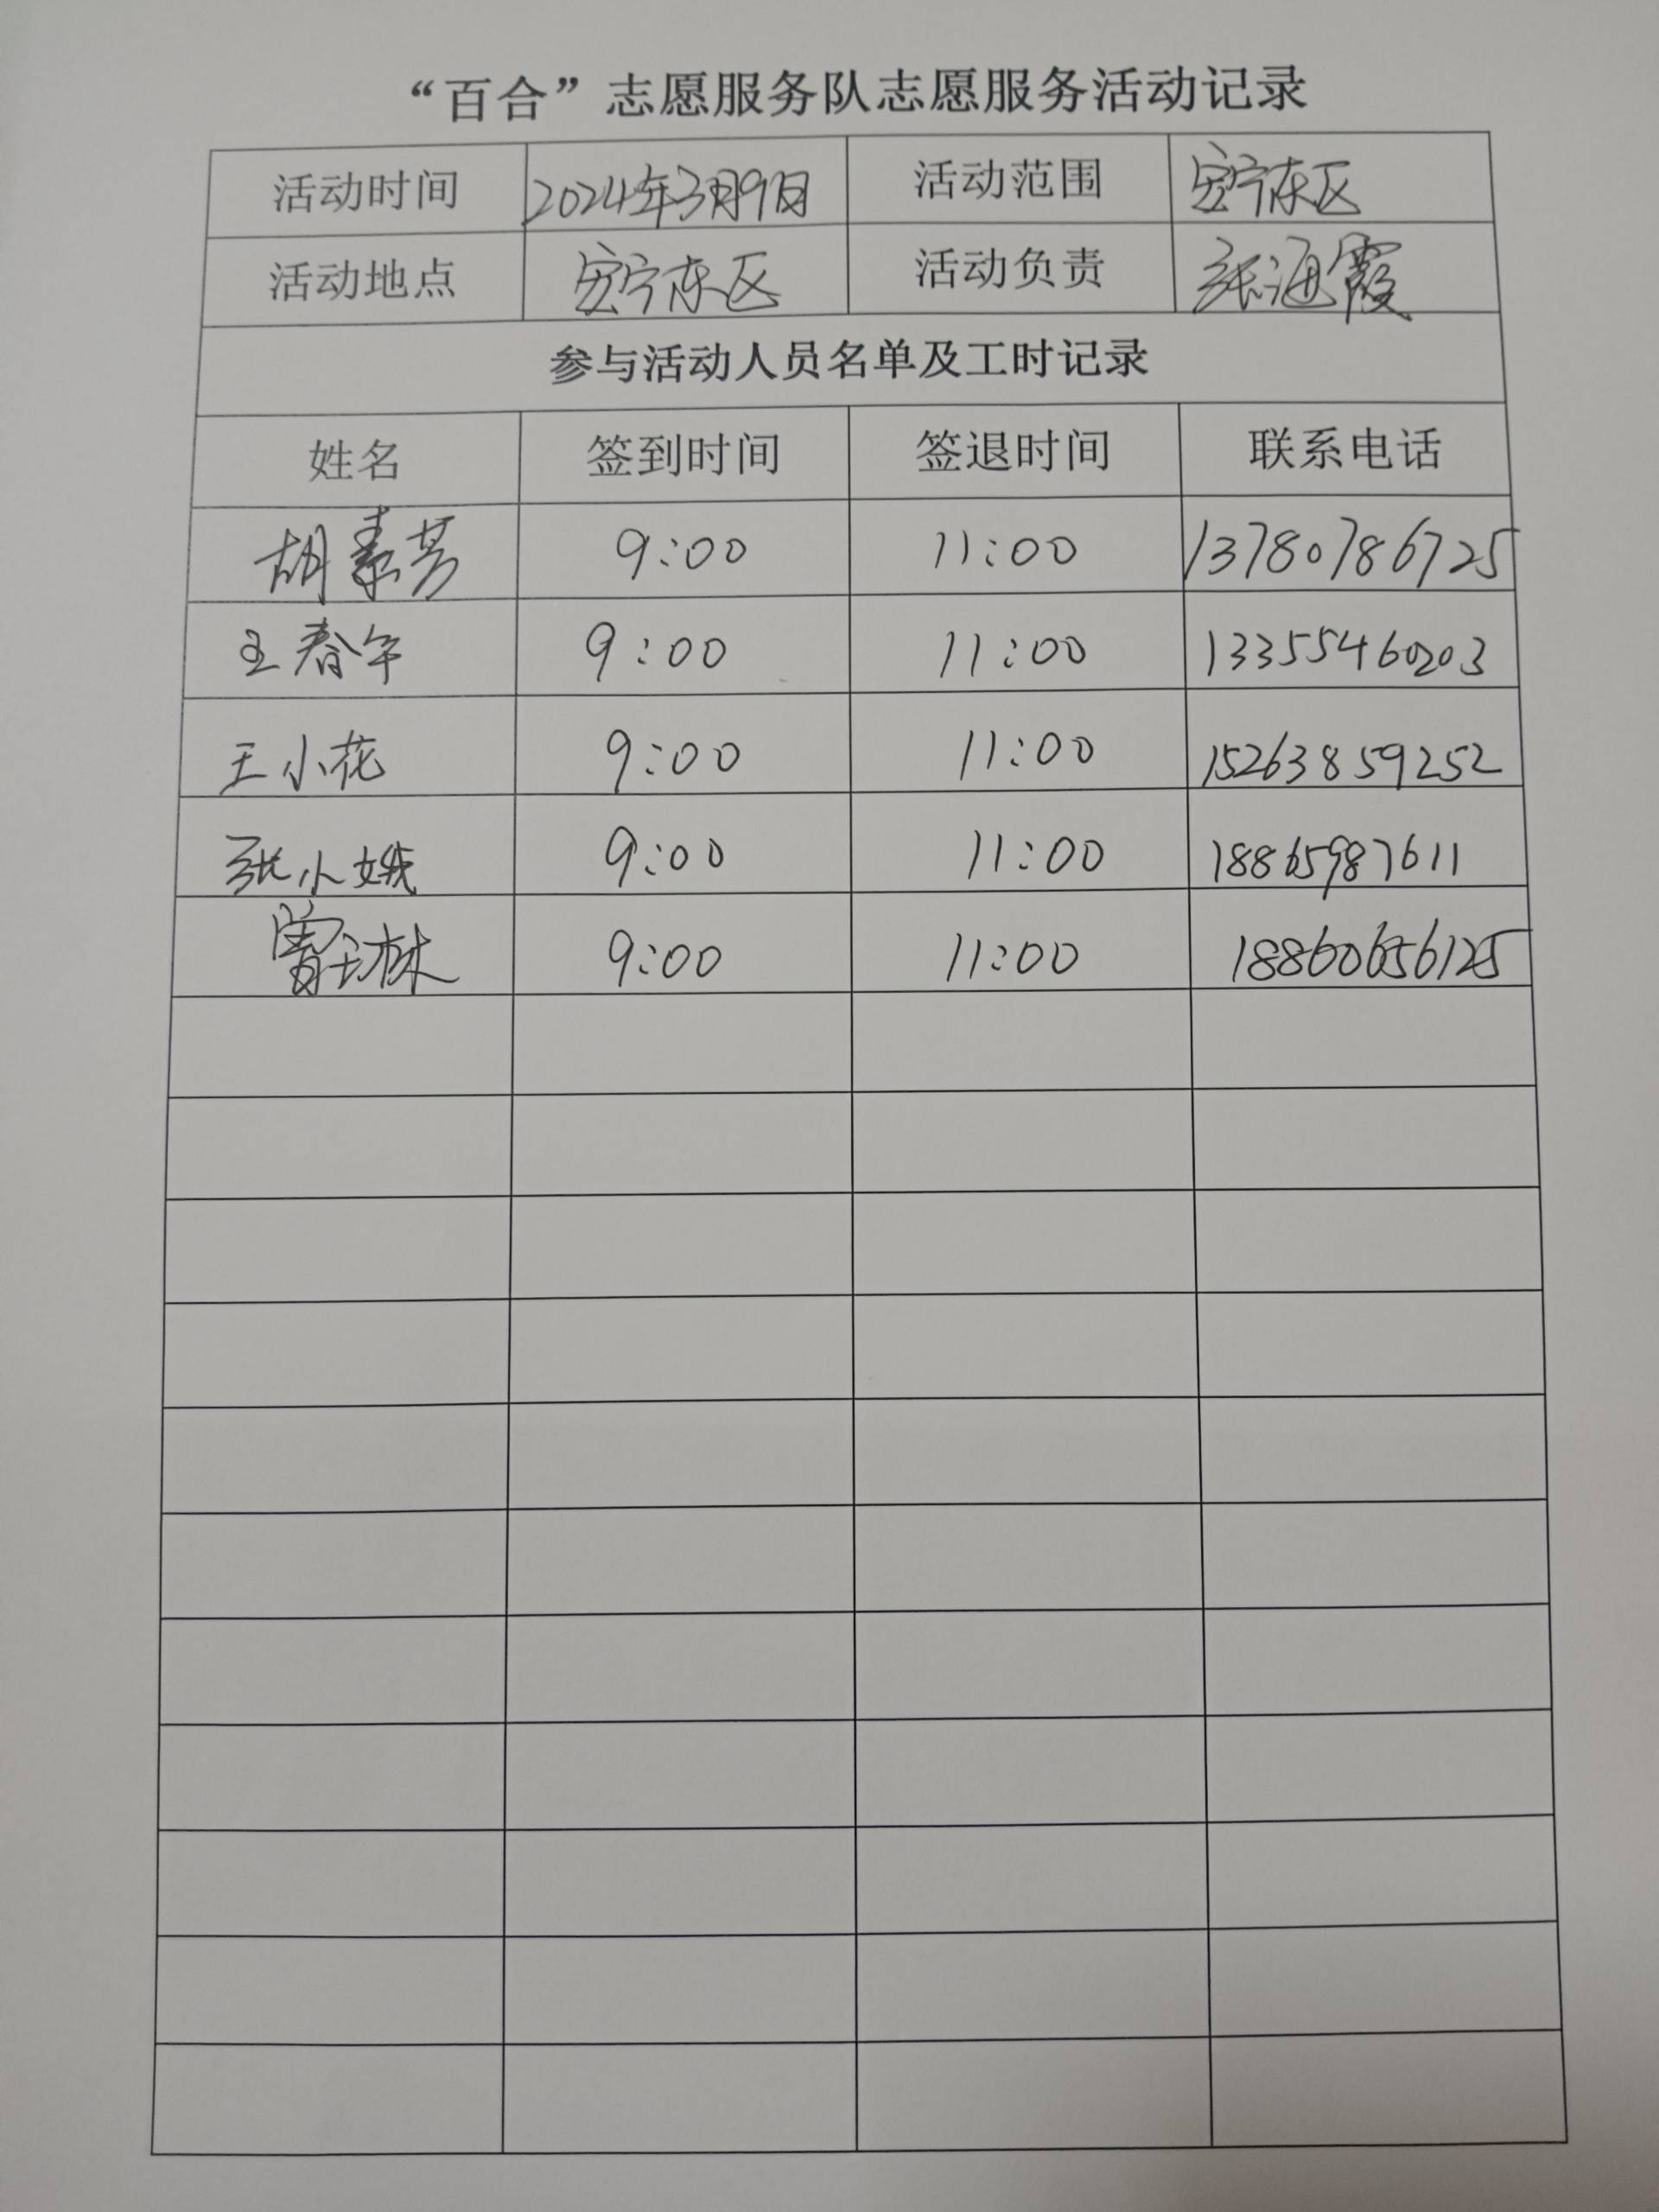 “百合”志愿服务队志愿服务活动记录
活动时间 2024年3月9日 活动范围 安宁东区
活动地点 安宁东区 活动负责 张海霞
参与活动人员名单及工时记录
姓名 签到时间 签退时间 联系电话
胡素芳 9:00 11:00 13780786725
王春午 9:00 11:00 13355460203
王小花 9:00 11:00 15263859252
张小娥 9:00 11:00 18865987611
9:00 11:00 18860656125